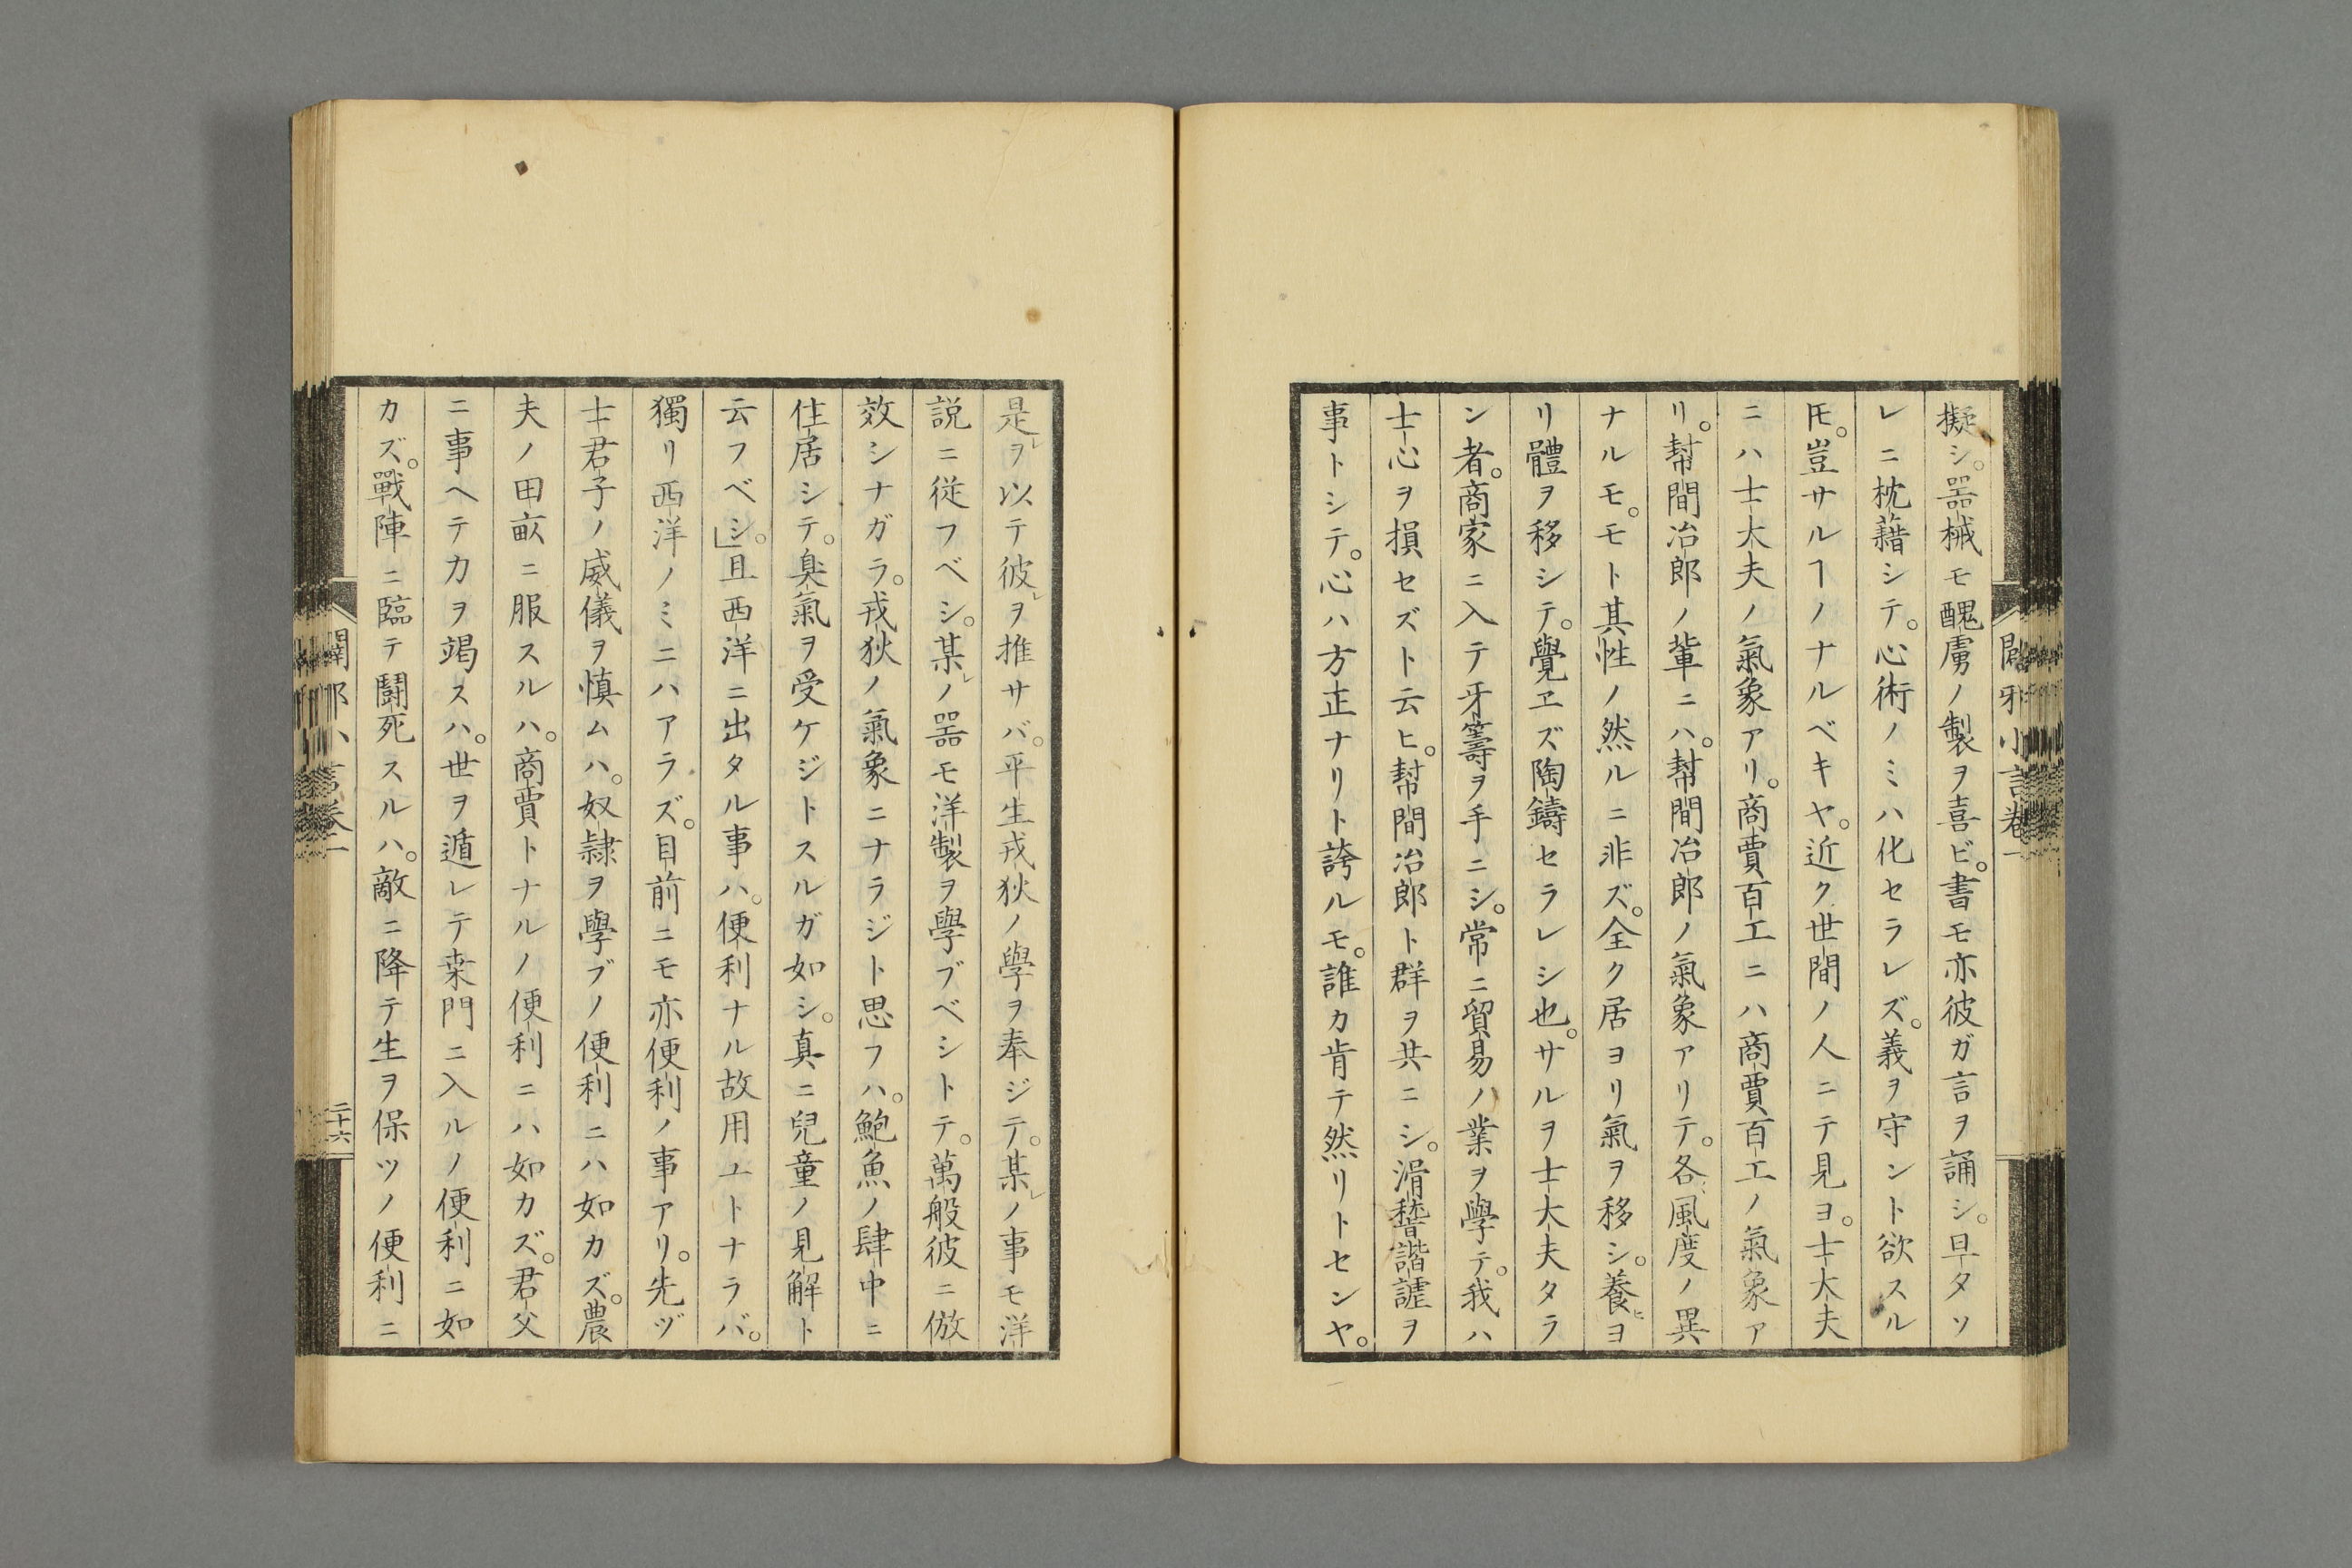 擬シ。器械モ醜虜ノ製ヲ喜ビ。書モ亦彼ガ言ヲ誦シ。早タソ
レニ枕藉シテ。心術ノミハ化セラレズ。義ヲ守ント欲スル
𪜈。豈サルヿノナルベキヤ。近ク世間ノ人ニテ見ヨ。士大夫
ニハ士大夫ノ氣象アリ。商賈百工ニハ商賈百工ノ氣象ア
リ。幇間冶郎ノ輩ニハ。幇間冶郎ノ氣象アリテ。各風度ノ異
ナルモ。モト其性ノ然ルニ非ズ。全ク居ヨリ氣ヲ移シ。養ヒヨ
リ體ヲ移シテ。覺ヱズ陶鑄セラレシ也。サルヲ士大夫タラ
ン者。商家ニ入テ牙籌ヲ手ニシ。常ニ貿易ノ業ヲ學テ。我ハ
士心ヲ損セズト云ヒ。幇間冶郎ト群ヲ共ニシ。滑稽諧謔ヲ
事トシテ。心ハ方正ナリト誇ルモ。誰カ肯テ然リトセンヤ。
闢邪小言卷一
是レヲ以テ彼レヲ推サバ。平生戎狄ノ學ヲ奉ジテ。某レノ事モ洋
説ニ従フベシ。某レノ器モ洋製ヲ學ブベシトテ。萬般彼ニ倣
效シナガラ。戎狄ノ氣象ニナラジト思フハ。鮑魚ノ肆中ニ
住居シテ。臭氣ヲ受ケジトスルガ如シ。真ニ兒童ノ見解ト
云フベシ。」且西洋ニ出タル事ハ。便利ナル故用ユトナラバ。
獨リ西洋ノミニハアラズ。目前ニモ亦便利ノ事アリ。先ヅ
士君子ノ威儀ヲ慎ムハ。奴隷ヲ學ブノ便利ニハ如カズ。農
夫ノ田畝ニ服スルハ。商賈トナルノ便利ニハ如カズ。君父
ニ事ヘテ力ヲ竭スハ。世ヲ遁レテ桒門ニ入ルノ便利ニ如
カズ。戰陣ニ臨テ鬪死スルハ。敵ニ降テ生ヲ保ツノ便利ニ
闢邪小言卷一
二十六